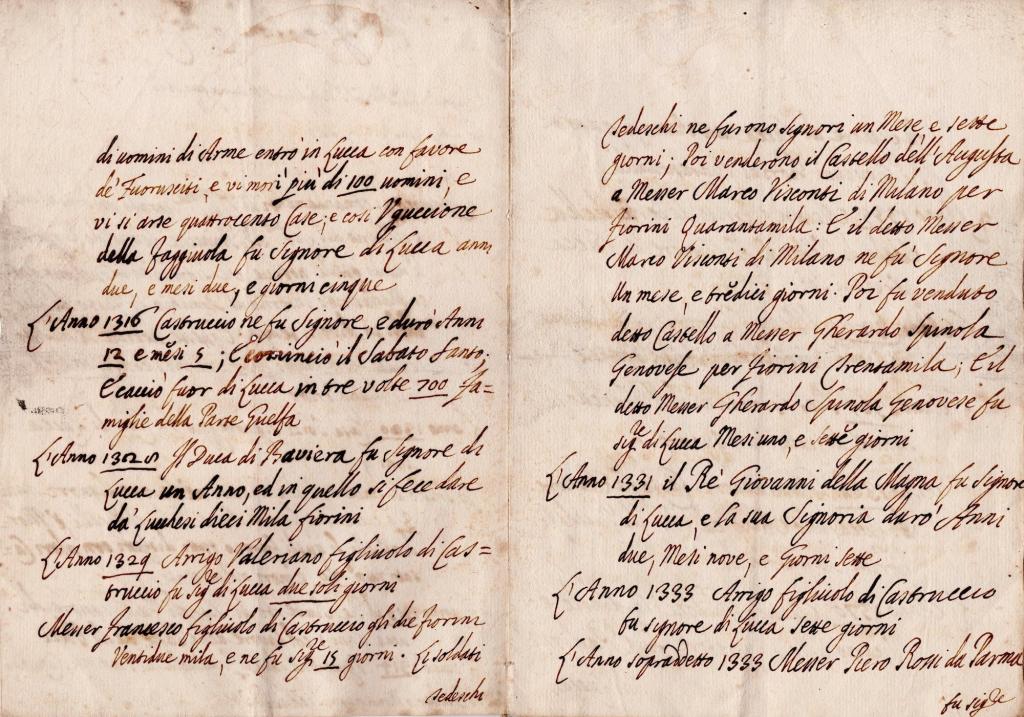 di uomini di Arme entrò in Lucca con favore
de' Fuorusciti, e vi morì più di 100 uomini, e
vi si arse quattrocento Case; e così Uguccione
della Faggiuola fu Signore di Lucca anni
due, e mesi due, e giorni cinque
L'Anno 1316 Castruccio ne fu Signore, e durò Anni
12 e mesi 5; E cominciò il Sabato Santo.
E cacciò fuor di Lucca in tre volte 700 Fa=
miglie della Parte Guelfa
L'Anno Il Duca di Baviera fu Signore di
Lucca un Anno, ed in quello si fece dare
da' Lucchesi dieci Mila fiorini
L'Anno 1329 Arrigo Valeriano figliuolo di Cas=
truccio fu Sig.re di Lucca due soli giorni
Messer Francesco figliuolo di Castruccio gli diè fiorini
Ventidue mila, e ne fu Sig.re 15 giorni. Li soldati
Tedeschi
Tedeschi ne furono Signori un Mese, e sette
giorni; Poi venderono il Castello dell'Augusta
a Messer Marco Visconti di Milano per
fiorini Quarantamila: E il detto Messer
Marco Visconti di Milano ne fù Signore
Un mese, e tredici giorni. Poi fu venduto
detto Castello a Messer Gherardo Spinola
Genovese per fiorini Trentamila; E il
detto Messer Gherardo Spinola Genovese fu
Sig.re di Lucca Mesi uno, e sette giorni
L'Anno 1331 il Rè Giovanni della Magna fu Signore
di Lucca, e la sua Signoria durò Anni
due, Mesi nove, e Giorni sette
L'Anno 1333 Arrigo figliuolo di Castruccio
fu signore di Lucca sette giorni
L'Anno sopraddetto 1333 Messer Piero Rossi da Parma
fu sig.re